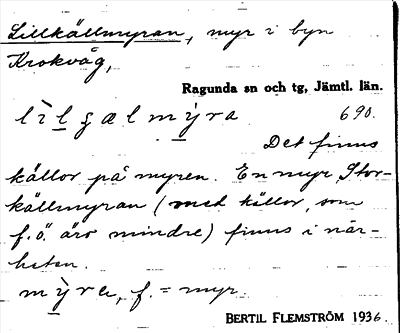 Lillkällmyran, myr i byn
Krokvåg,
Ragunda sn och tg, Jämtl. län.
690.
Det finns
källor på myren. En myr, Stor-
källmyran (med källor, som
f.ö. äro mindre) finns i när-
heten.
f. = myr.
BERTIL FLEMSTRÖM 1936.